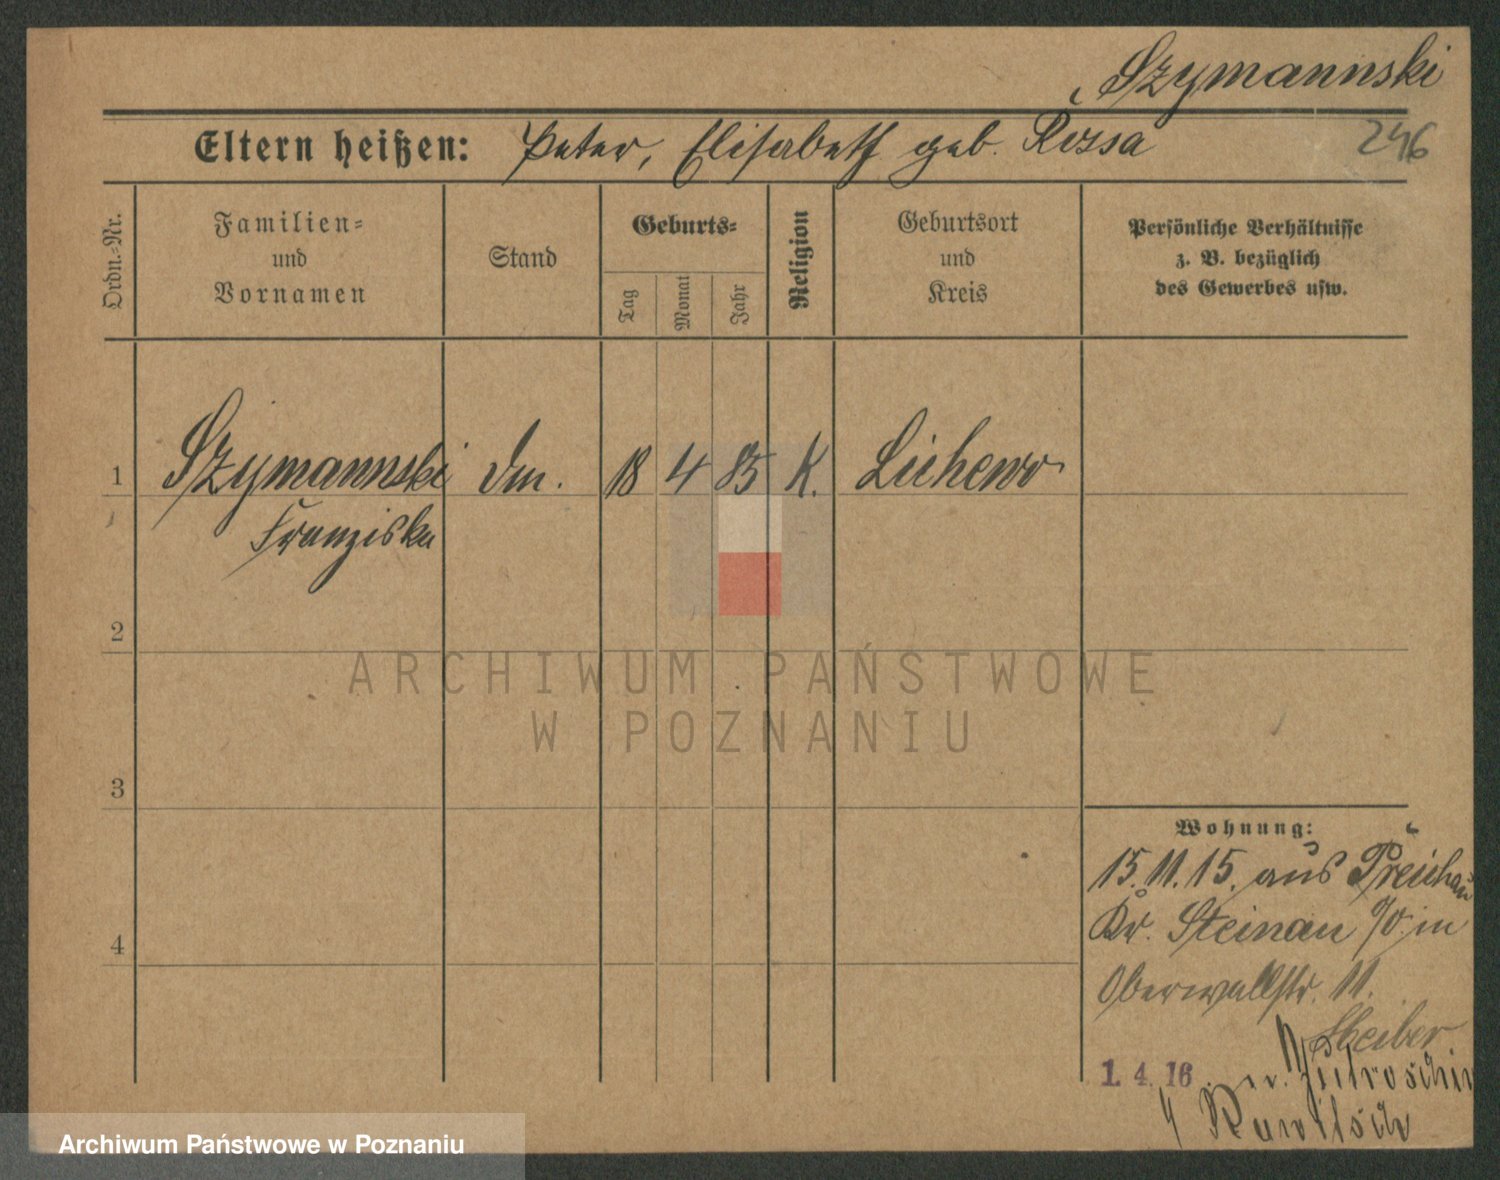 Szymannski
Eltern heißen: Peter, Elisabeth geb. Rozsa
246
Ordn.-Nr.
Familien-
und
Vornamen
Stand
Geburts-
Tag
Monat
Jahr
Religion
Geburtsort
und
Kreis
Persönliche Verhältnisse
z. B. bezüglich
des Gewerbes usw.
1 Szymannski 18 4 85 K.
Franziska
2
ARCHIWUM PAŃSTWOWE
W POZNANIU
3
Wohnung:
15. 11. 15. aus Preichau
4 Kr. Steinau %O. in
Oberwallstr. 11.
1. 4. 16 Jutroschin
Rawitsch
Archiwum Państwowe w Poznaniu